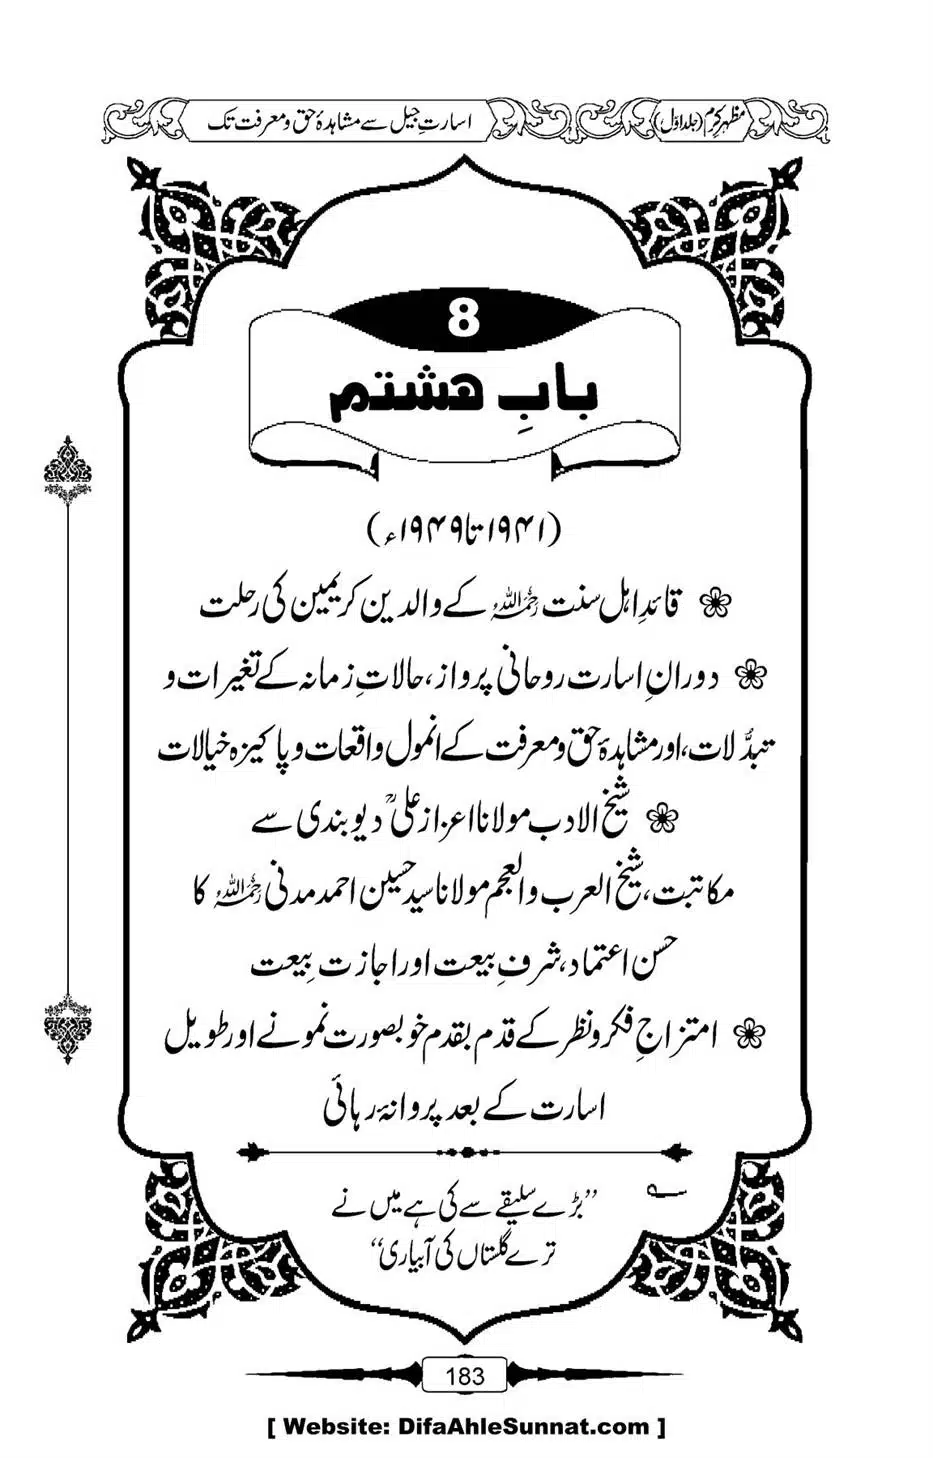 مظہرِ کرم (جلد اوّل) اسارتِ جیل سے مشاہدۂ حق و معرفت تک
8
بابِ هشتم
(۱۹۴۱ تا ۱۹۴۹ء)
قائدِ اہل سنت رحمہ اللہ کے والدین کریمین کی رحلت
دورانِ اسارت روحانی پرواز، حالاتِ زمانہ کے تغیرات و
تبدُّلات، اور مشاہدۂ حق و معرفت کے انمول واقعات و پاکیزہ خیالات
شیخ الادب مولانا اعزاز علیؒ دیوبندی سے
مکاتبت، شیخ العرب والعجم مولانا سید حسین احمد مدنی رحمہ اللہ کا
حسن اعتماد، شرفِ بیعت اور اجازت بِیعت
امتزاجِ فکر و نظر کے قدم بقدم خوبصورت نمونے اور طویل
اسارت کے بعد پروانۂ رہائی
؎ ’’بڑے سلیقے سے کی ہے میں نے
ترے گلستاں کی آبیاری‘‘
183
[ Website: DifaAhleSunnat.com ]